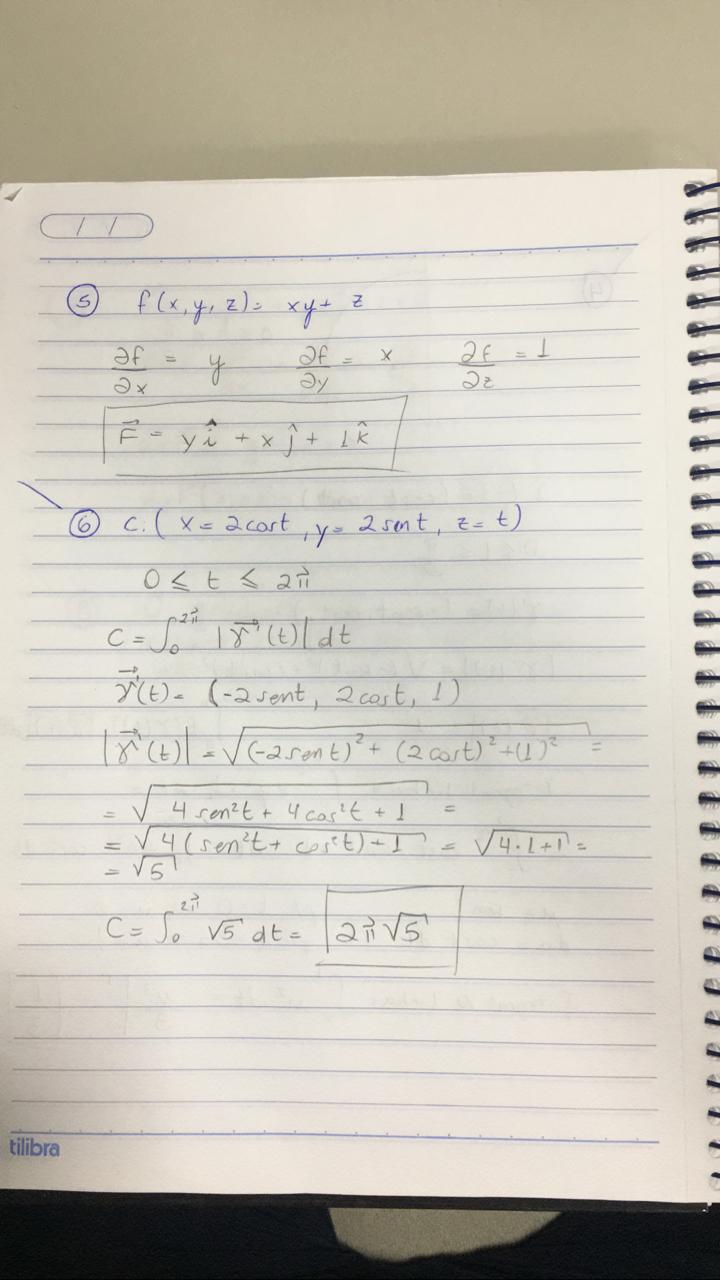 / /
⑤ f(x,y,z)= xy+ z
∂f/∂x = y ∂f/∂y = x ∂f/∂z = 1
F⃗ = y î + x ĵ + 1 k̂
⑥ C: ( x= 2cost , y= 2sent, z= t)
0 ≤ t ≤ 2π
C = ∫₀^2π |γ⃗'(t)| dt
γ⃗'(t)= (-2sent, 2cost, 1)
|γ⃗'(t)| = √((-2sent)² + (2cost)² +(1)²) =
= √(4 sen²t + 4cos²t + 1) =
= √(4(sen²t + cos²t) + 1) = √(4·1+1) =
= √5
C= ∫₀^2π √5 dt = 2π√5
tilibra